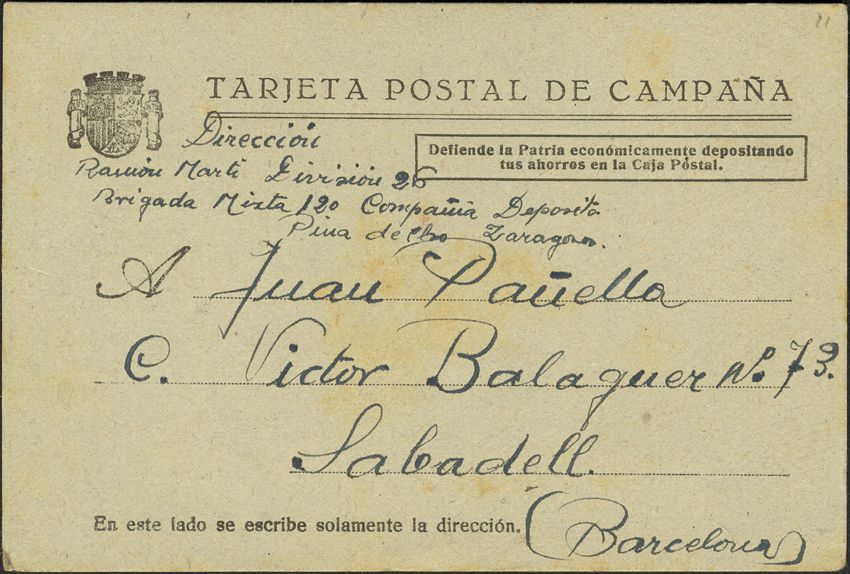 21
TARJETA POSTAL DE CAMPAÑA
Dirección
Defiende la Patria económicamente depositando
tus ahorros en la Caja Postal.
Ramón Martí División 26
Brigada Mixta 120 Compañia Deposito
Pina de Ebro Zaragoza.
A Juan Pañella
C. Victor Balaguer Nº 73.
Sabadell.
En este lado se escribe solamente la dirección.
(Barcelona)